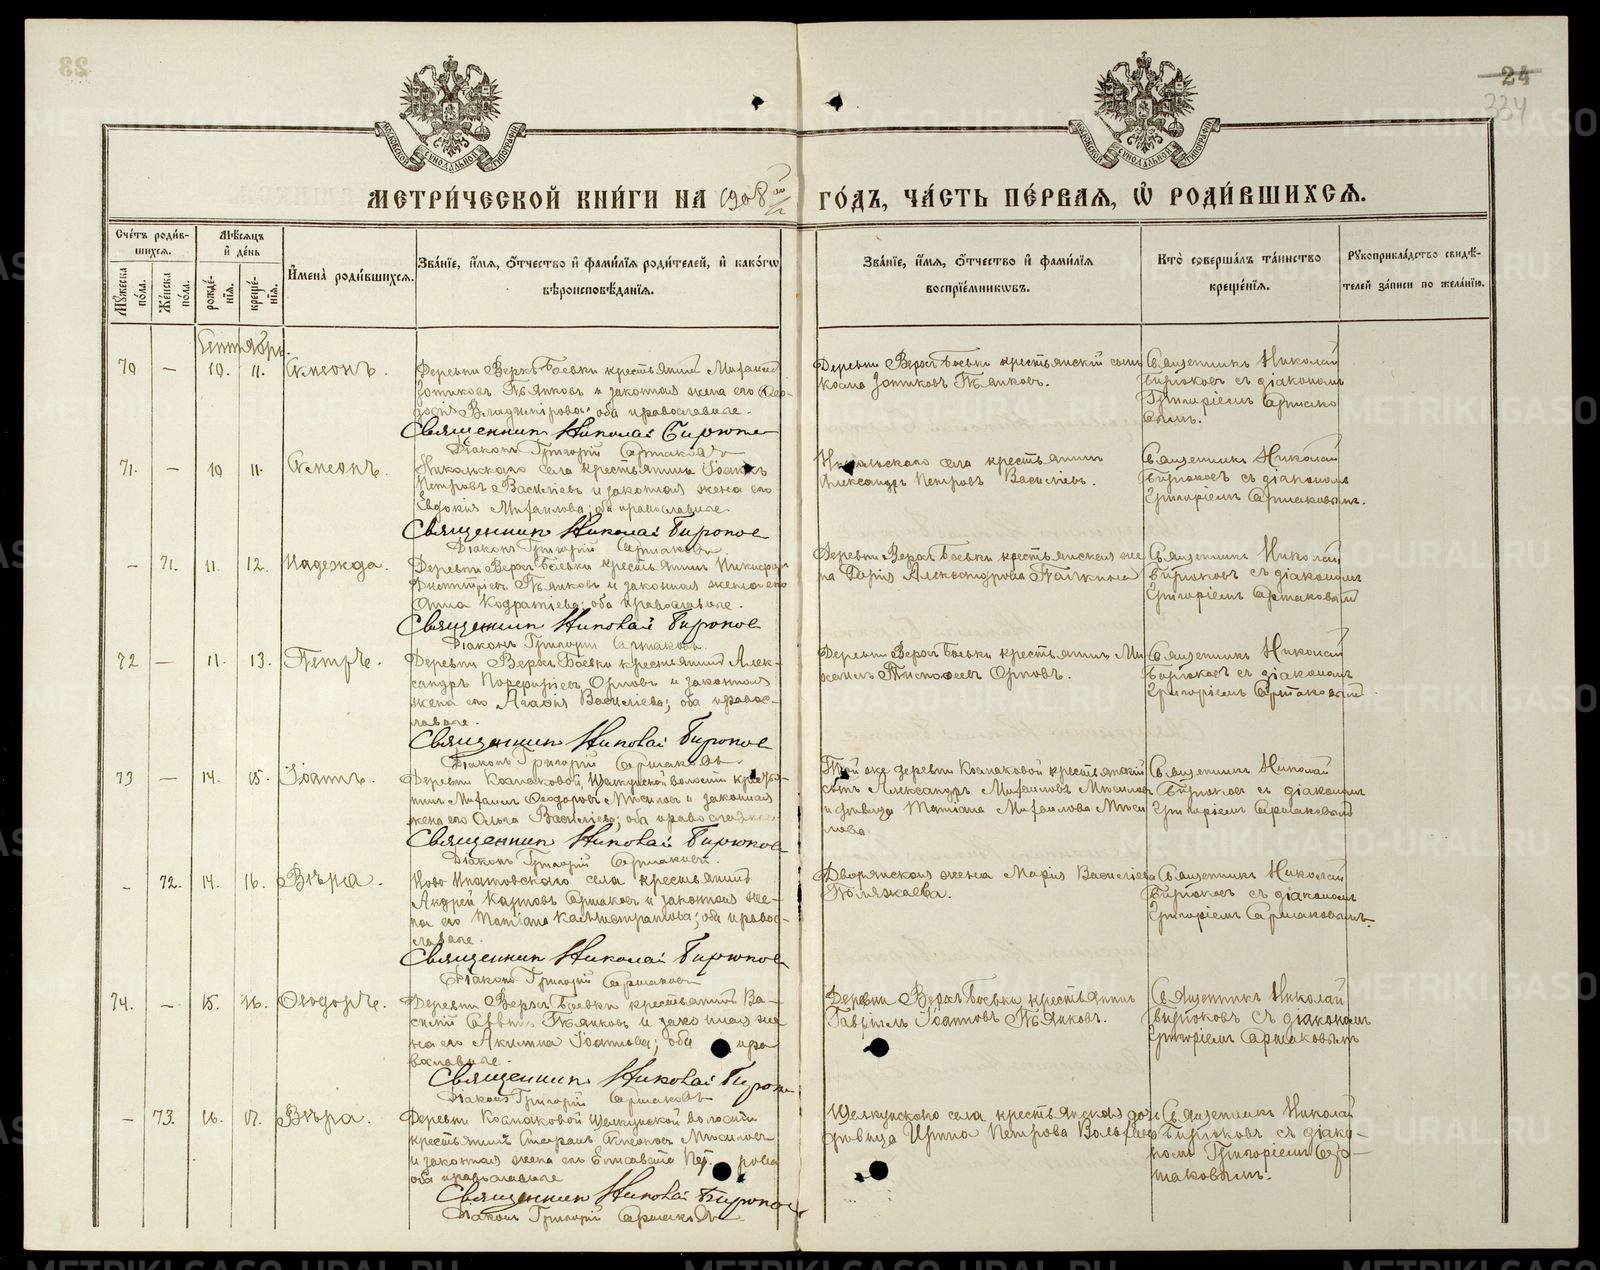 24
334
МОСКОВСКОЙ СѴНОДАЛЬНОЙ ТИПОГРАФІИ
МОСКОВСКОЙ СѴНОДАЛЬНОЙ ТИПОГРАФІИ
МЕТРИ́ЧЕСКОЙ КНИ́ГИ НА 1908 ой ГО́ДЪ, ЧА́СТЬ ПЕ́РВАЯ, Ѽ РОДИ́ВШИХСѦ.
Сче́тъ роди́в-
шихся.
Мѣ́сяцъ
и҆ де́нь
Мꙋ́жеска
по́ла.
Же́нска
по́ла.
рожде́-
нїя.
креще́-
нїя.
И҆мена̀ роди́вшихся.
Зва́нїе, и҆́мя, ѻ҆́тчество и҆ фами́лїя роди́телей, и҆ како́гѡ
вѣроисповѣ́данїя.
Зва́нїе, и҆́мя, ѻ҆́тчество и҆ фами́лїя
воспрїе́мникѡвъ.
Кто̀ соверша́лъ та́инство
креще́нїя.
Рꙋкоприкла́дство свидѣ́-
телей за́писи по жела́нїю.
Сентябрь.
70 — 10. 11. Симеонъ.
Деревни Верхъ-Боевки крестьянинъ Михаилъ
Зотиковъ Пьянковъ и законная жена его Ѳео-
досія Владимірова; оба православные.
Священник Николай Бирюков
Діаконъ Григорій Сармаковъ
Деревни Верхъ Боевки крестьянскій сынъ
Зотиковъ Пьянковъ.
Священникъ Николай
Бирюковъ съ діакономъ
Григоріемъ Сармако
вымъ.
71. — 10 11. Симеонъ.
Никольскаго села крестьянинъ Іоаннъ
Петровъ Васильевъ и законная жена его
Евдокія Михаилова; оба православные.
Священник Николай Бирюков
Діаконъ Григорій Сармаковъ
Никольскаго села крестьянинъ
Александръ Петровъ Васильевъ.
Священникъ Николай
Бирюковъ съ діакономъ
Григоріемъ Сармаковымъ.
— 71. 11. 12. Надежда.
Деревни Верхъ Боевки крестьянинъ Никифоръ
Димитріевъ Пьянковъ и законная жена его
Анна Кодратіева; оба православные.
Священник Николай Бирюков
Діаконъ Григорій Сармаковъ.
Деревни Верхъ Боевки крестьянская же
на Дарія Александрова
Священникъ Николай
Бирюковъ съ діакономъ
Григоріемъ Сармаковымъ
72 — 11. 13. Петръ.
Деревни Верхъ Боевки крестьянинъ Алек-
сандръ Порфиріевъ Орловъ и законная
жена его Агафія Васильева; оба правос-
лавные.
Священник Николай Бирюков
Діаконъ Григорій Сармаковъ
Деревни Верхъ Боевки крестьянинъ Ми
хаилъ Орловъ.
Священникъ Николай
Бирюковъ съ діакономъ
Григоріемъ Сармаковымъ
73 — 14. 15. Іоаннъ.
Деревни Космаковой, Щелкунской волости крестья-
нинъ Михаилъ Ѳеодоровъ Мысиловъ и законная
жена его Ольга Васильева; оба православные
Священник Николай Бирюков
Діаконъ Григорій Сармаковъ.
Той же деревни Космаковой крестьянскій
сынъ Александръ Михаиловъ Мысиловъ
и дѣвица Татіана Михаилова Мыси
лова.
Священникъ Николай
Бирюковъ съ діакономъ
Григоріемъ Сармаковымъ
— 72. 14. 16. Вѣра.
Ново Ипатовскаго села крестьянинъ
Андрей Карповъ Сармаковъ и законная же-
на его Татіана Каллистратова; оба правос-
лавные.
Священник Николай Бирюков
Діаконъ Григорій Сармаковъ
Дворянская жена Марія Васильева
Полежаева.
Священникъ Николай
Бирюковъ съ діакономъ
Григоріемъ Сармаковымъ.
74. — 15. 16. Ѳеодоръ.
Деревни Верхъ Боевки крестьянинъ Ва-
силій Саввинъ Пьянковъ и законная же
на его Акилина Іоаннова; оба пра
вославные.
Священник Николай Бирюков
Діаконъ Григорій Сармаковъ
Деревни Верхъ Боевки крестьянинъ
Гавріилъ Іоанновъ Пьянковъ.
Священникъ Николай
Бирюковъ съ діакономъ
Григоріемъ Сармаковымъ
— 73. 16. 17. Вѣра.
Деревни Космаковой Щелкунской волости
крестьянинъ Стефанъ Симеоновъ Мысиловъ
и законная жена его Елисавета Петрова
оба православные
Священник Николай Бирюков
Діаконъ Григорій Сармаковъ
Щелкунскаго села крестьянская дочь
дѣвица Ирина Петрова
Священникъ Николай
Бирюковъ съ діако-
номъ Григоріемъ Сар-
маковымъ.
METRIKI.GASO-URAL.RU